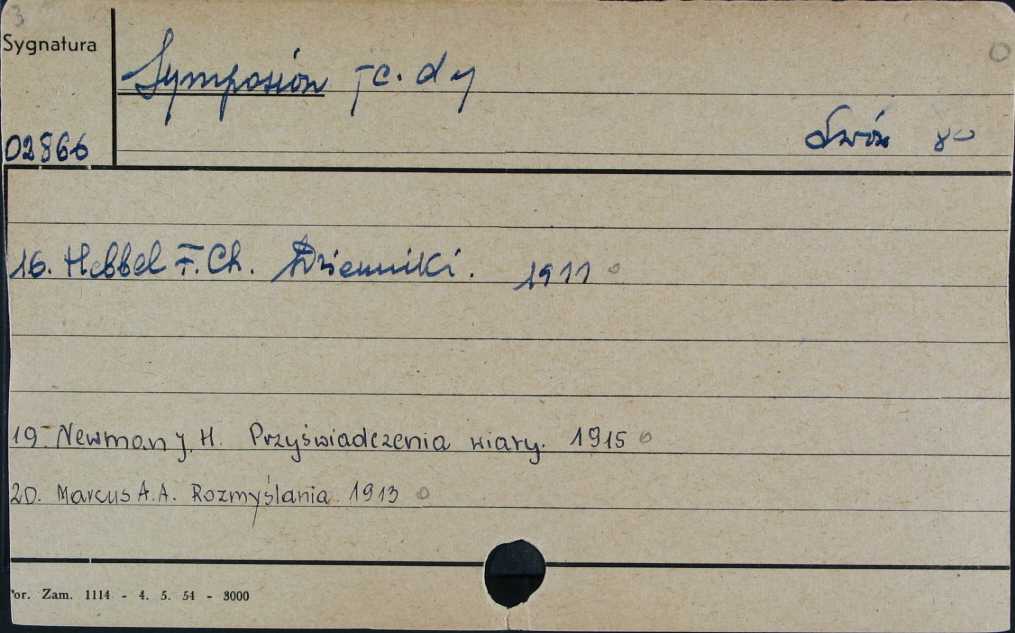 3
Sygnatura
Symposion Tc. d y
02866
Lwów 8o
16. Hebbel F. Ch. Dzienniki. 1911 o
19. Newman J. H. Przyświadczenia wiary. 1915 o
20. Marcus A. A. Rozmyślania 1913 o
or. Zam. 1114 - 4. 5. 54 - 3000